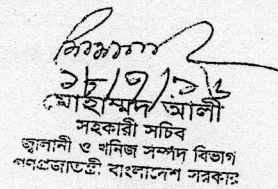 মোহাম্মদ আলী
সহকারী সচিব
জ্বালানী ও খনিজ সম্পদ বিভাগ
গণপ্রজাতন্ত্রী বাংলাদেশ সরকার